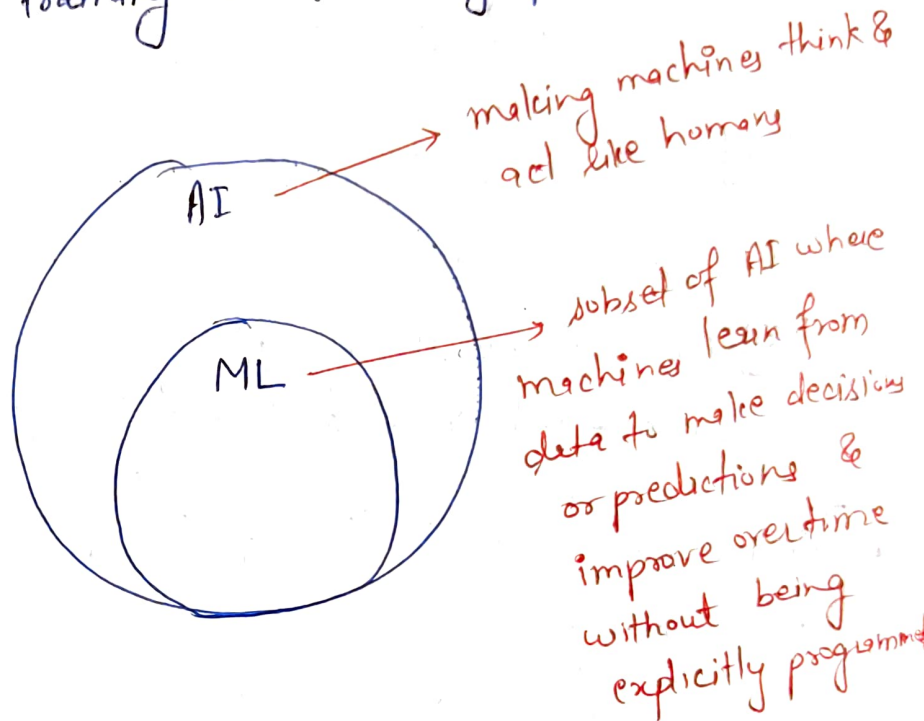 making machines think &
act like humans
AI
subset of AI where
ML
machines learn from
data to make decisions
or predictions &
improve overtime
without being
explicitly programmed